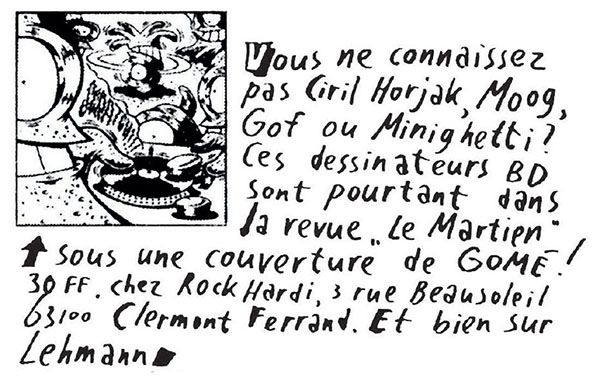 Vous ne connaissez
pas Ciril Horjak, Moog,
Gof ou Minighetti?
Ces dessinateurs BD
sont pourtant dans
la revue „Le Martien"
sous une couverture de GOMÉ!
30 FF. chez Rock Hardi, 3 rue Beausoleil
63100 Clermont Ferrand. Et bien sur
Lehmann